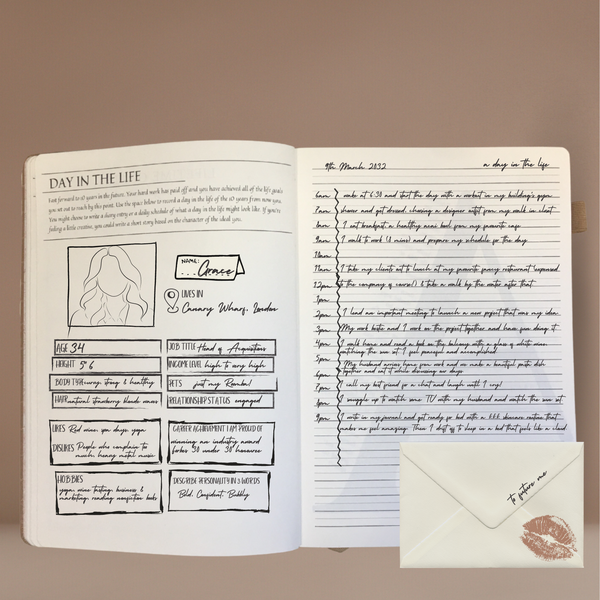 DAY IN THE LIFE
Fast forward to 10 years in the future. Your hard work has paid off and you have achieved all of the life goals
you set out to reach by this point. Use the space below to record a day in the life of the 10 years from now you.
You might choose to write a diary entry or a daily schedule of what a day in the life might look like. If you're
feeling a little creative, you could write a short story based on the character of the ideal you.
NAME:
Grace
LIVES IN
Canary Wharf, London
AGE 34
HEIGHT 5"6
BODY TYPE curvy, strong & healthy
HAIR natural strawberry blonde waves
JOB TITLE Head of Acquisitions
INCOME LEVEL high to very high
PETS just my Roomba!
RELATIONSHIP STATUS engaged
LIKES Red wine, spa days, yoga
DISLIKES People who complain to
much, heavy metal music
CAREER ACHIEVEMENT I AM PROUD OF
winning an industry award
forbes 30 under 30 honouree
HOBBIES
yoga, wine tasting, business &
marketing, reading nonfiction books
DESCRIBE PERSONALITY IN 3 WORDS
Bold, Confident, Bubbly
9th March 2032
a day in the life
6am wake at 6.30 and start the day with a workout in my building's gym
7am shower and get dressed, choosing a designer outfit from my walk in closet
8am I eat breakfast, a healthy acai bowl from my favourite cafe
9am I walk to work (8 mins) and prepare my schedule for the day
10am
11am I take my clients out to lunch at my favourite fancy restaurant (expensed
12pm to the company of course!) & take a walk by the water after that
1pm
2pm I lead an important meeting to launch a new project that was my idea
3pm My work bestie and I work on the project together and have fun doing it
4pm I walk home and read a book on the balcony with a glass of white wine
watching the sun set. I feel peaceful and accomplished
5pm My husband arrives home from work and we make a beautiful pasta dish
6pm together and eat it while discussing our days
7pm I call my best friend for a chat and laugh until I cry!
8pm I snuggle up to watch some TV with my husband and watch the sun set
9pm I write in my journal and get ready for bed with a £££ skincare routine that
makes me feel amazing. Then I drift off to sleep in a bed that feels like a cloud
to future me